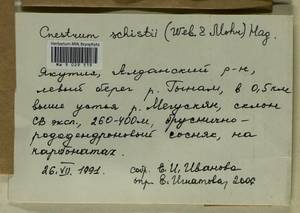 Cnestrum schistii (Web. & Mohr) Hag.
Herbarium MHA Bryophyta
Якутия, Алданский р-н,
левый берег р. Тыннам, в 0,5 км
выше устья р. Мегускян, склон
СВ эксп., 260-400м, бруснично-
рододендроновый сосняк, на
карбонатах.
26.VII.1991. собр. Е.И. Иванова
опр. Е. Игнатова, 2006